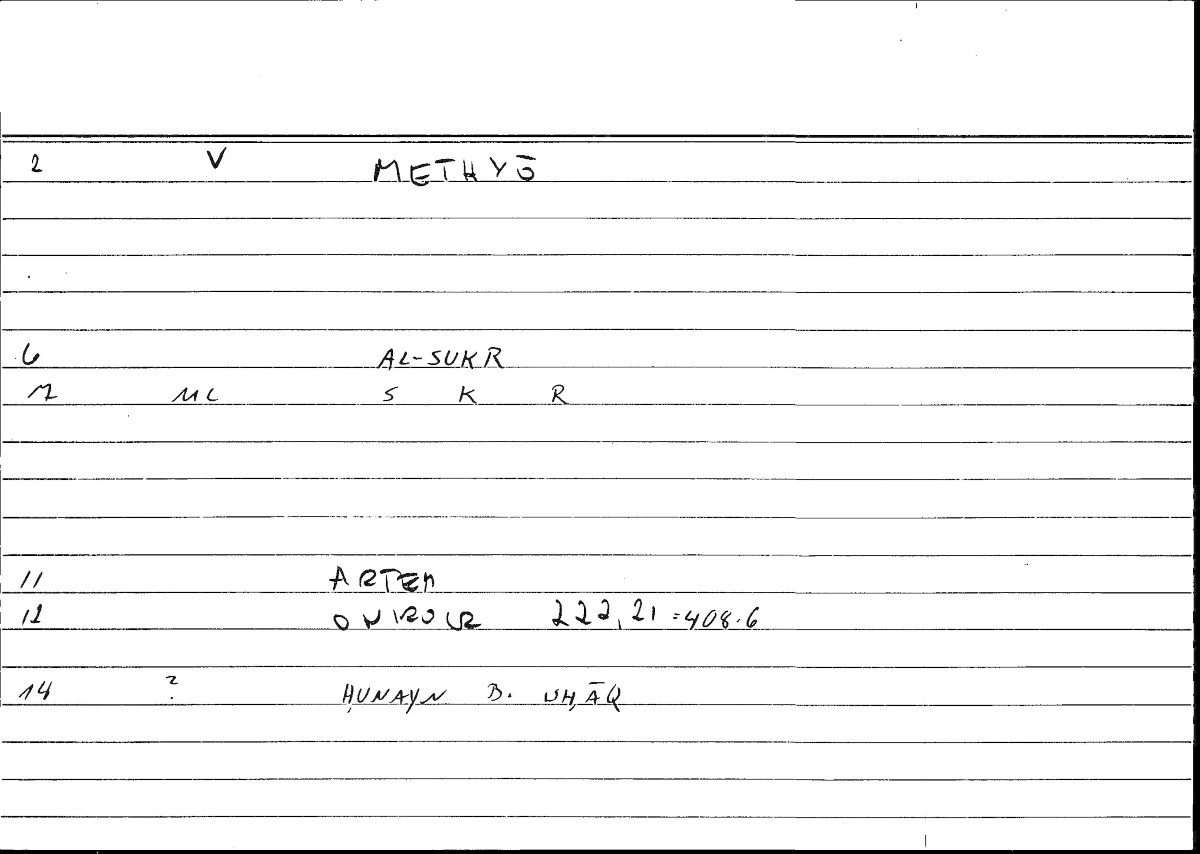 2 V METHYŌ
6 AL-SUKR
7 ML S K R
11 ARTEM
12 ONIROCR 222,21 = 408.6
14 ? ḤUNAYN B. ISḤĀQ